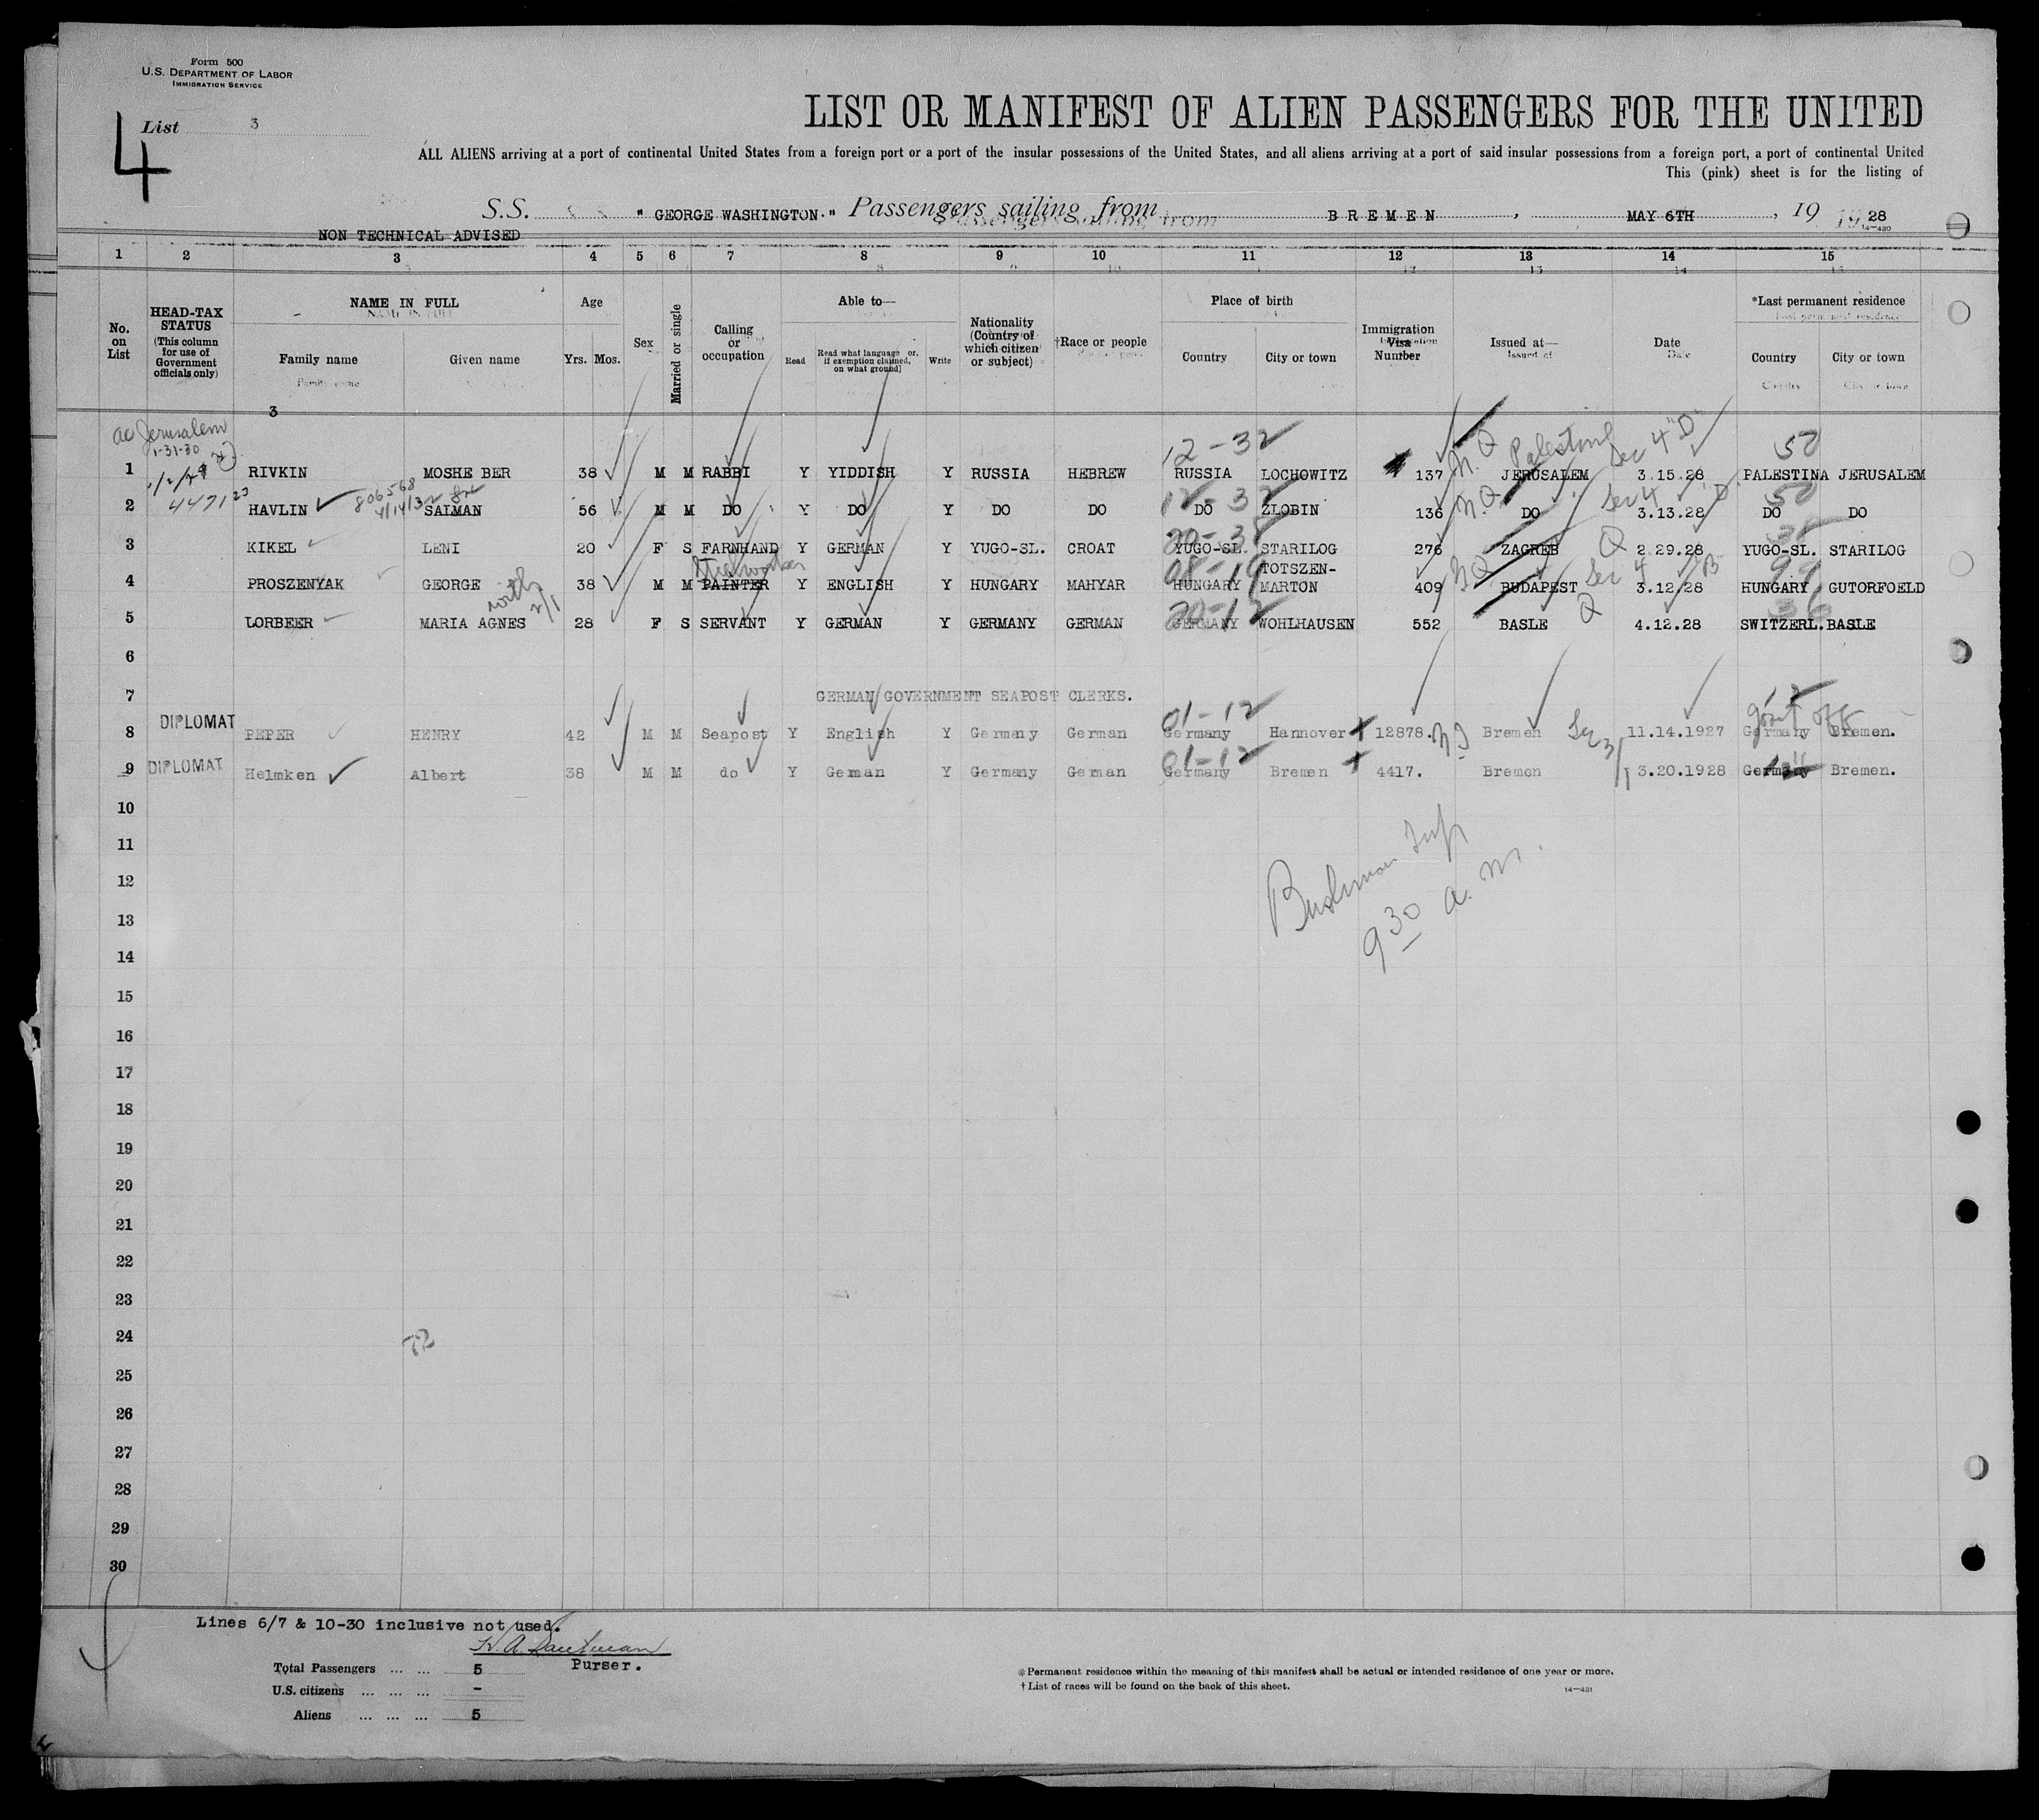 Form 500
U.S. DEPARTMENT OF LABOR
IMMIGRATION SERVICE
4
List 3
LIST OR MANIFEST OF ALIEN PASSENGERS FOR THE UNITED
ALL ALIENS arriving at a port of continental United States from a foreign port or a port of the insular possessions of the United States, and all aliens arriving at a port of said insular possessions from a foreign port, a port of continental United
This (pink) sheet is for the listing of
S.S. "GEORGE WASHINGTON." Passengers sailing from BREMEN, MAY 6TH, 19 28
14-430
NON TECHNICAL ADVISED
1 2 3 4 5 6 7 8 9 10 11 12 13 14 15
No. on List
HEAD-TAX STATUS (This column for use of Government officials only)
NAME IN FULL
Family name Given name
Age
Yrs. Mos.
Sex
Married or single
Calling or occupation
Able to—
Read Read what language [or, if exemption claimed, on what ground] Write
Nationality (Country of which citizen or subject)
†Race or people
Place of birth
Country City or town
Immigration Visa Number
Issued at—
Date
*Last permanent residence
Country City or town
3
Jerusalem
1-31-30
12-32 N.Q Palestine Sec 4 "D" 50
1 RIVKIN MOSHE BER 38 M M RABBI Y YIDDISH Y RUSSIA HEBREW RUSSIA LOCHOWITZ 137 JERUSALEM 3.15.28 PALESTINA JERUSALEM
44712 806568 12-32 N.Q Sec 4 D 50
2 HAVLIN SALMAN 56 M M DO Y DO Y DO DO DO ZLOBIN 136 DO 3.13.28 DO DO
20-38 Q
3 KIKEL LENI 20 F S FARNHAND Y GERMAN Y YUGO-SL. CROAT YUGO-SL. STARILOG 276 ZAGREB 2.29.28 YUGO-SL. STARILOG
08-19 NQ Sec 4 B 99
4 PROSZENYAK GEORGE 38 M M PAINTER Y ENGLISH Y HUNGARY MAHYAR HUNGARY TOTSZEN-MARTON 409 BUDAPEST 3.12.28 HUNGARY GUTORFOELD
with 20-12 Q 36
5 LORBEER MARIA AGNES 28 F S SERVANT Y GERMAN Y GERMANY GERMAN GERMANY WOHLHAUSEN 552 BASLE 4.12.28 SWITZERL. BASLE
6
7 GERMAN GOVERNMENT SEAPOST CLERKS.
01-12
8 DIPLOMAT PEPER HENRY 42 M M Seapost Y English Y Germany German Germany Hannover 12878. Bremen Sec 3/1 11.14.1927 Germany Bremen.
01-12
9 DIPLOMAT Helmken Albert 38 M M do Y German Y Germany German Germany Bremen 4417. Bremen 3.20.1928 Germany Bremen.
10
11
12
Bushman Insp
13
9 30 a.m.
14
15
16
17
18
19
20
21
22
23
24
25
26
27
28
29
30
Lines 6/7 & 10-30 inclusive not used.
Purser.
Total Passengers ... ... 5
U.S. citizens ... ... ... -
Aliens ... ... ... 5
*Permanent residence within the meaning of this manifest shall be actual or intended residence of one year or more.
†List of races will be found on the back of this sheet.
14-431